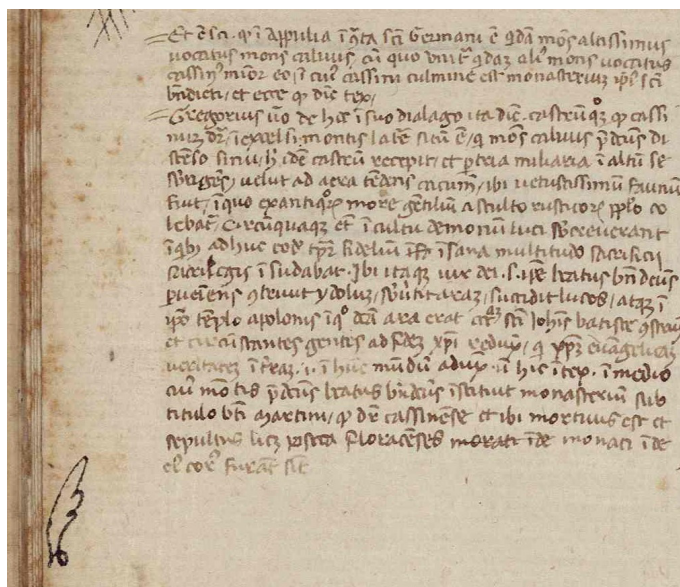 Et est sci. qp i Appulia i qta scti Germani e qdam mōs altissimus
vocatus mons caluus, cū quo unit qdaz ali' mons vocatus
cassin' minor eo, ī cui' cassini culmine est monasteriuz ipsi' scti
bndicti, et ecce qp dīc tex,
Gregorius uo de hic ī suo dialago ita dīc. castrū qp cassi
num dr, ī excelsi montis latēr sitū ē, q mōs caluus pdcūs di
stēso sinu, h idē castrū recepit, et p tria miliaria ī altū se
subrigēs, velut ad aera tēdens cacumē, ibi vetustissimū fanum
fuit, ī quo ex antiquor more gētiliū a stulto rusticor pplo co
lebat, circūquaqz et ī cultu demonum luci subcreuerant
ī qbz adhuc eodē tpr īfideliū īsana multitudo sacrificiis
sacrilegis īsudabat. Ibi itaqz uir dei .s. ipe beatus bndcūs
pueiens qtriuit ydoluz, subuertit araz, succidit lucos, atqz ī
ipo tēplo apolonis ī qo dcā ara erat scti Johis batiste qstrux
et circūstantes gentes ad fidez xpi redux, q xps euāgelicaz
veritatez ī traz. i. ī hūc mūdū adux. ū hic ī tex. ī medio
cui' mōtis pdcūs beatus bndcūs īstituit monasteriū sub
titulo bti Martini, qp dr cassinēse et ibi mortuus est et
sepultus licz postea floracēses morati īde monaci īde
ei' cor' furati sīt